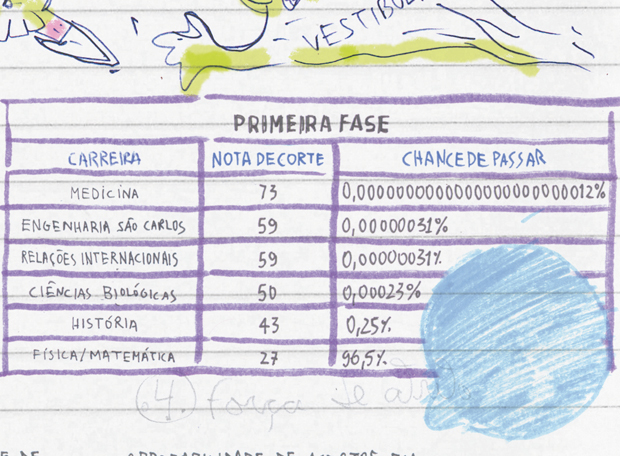 VESTIBUL
PRIMEIRA FASE
CARREIRA NOTA DE CORTE CHANCE DE PASSAR
MEDICINA 73 0,0000000000000000000000012%
ENGENHARIA SÃO CARLOS 59 0,00000031%
RELAÇÕES INTERNACIONAIS 59 0,00000031%
CIÊNCIAS BIOLÓGICAS 50 0,00023%
HISTÓRIA 43 0,25%
FÍSICA/MATEMÁTICA 27 96,5%
4. Força de